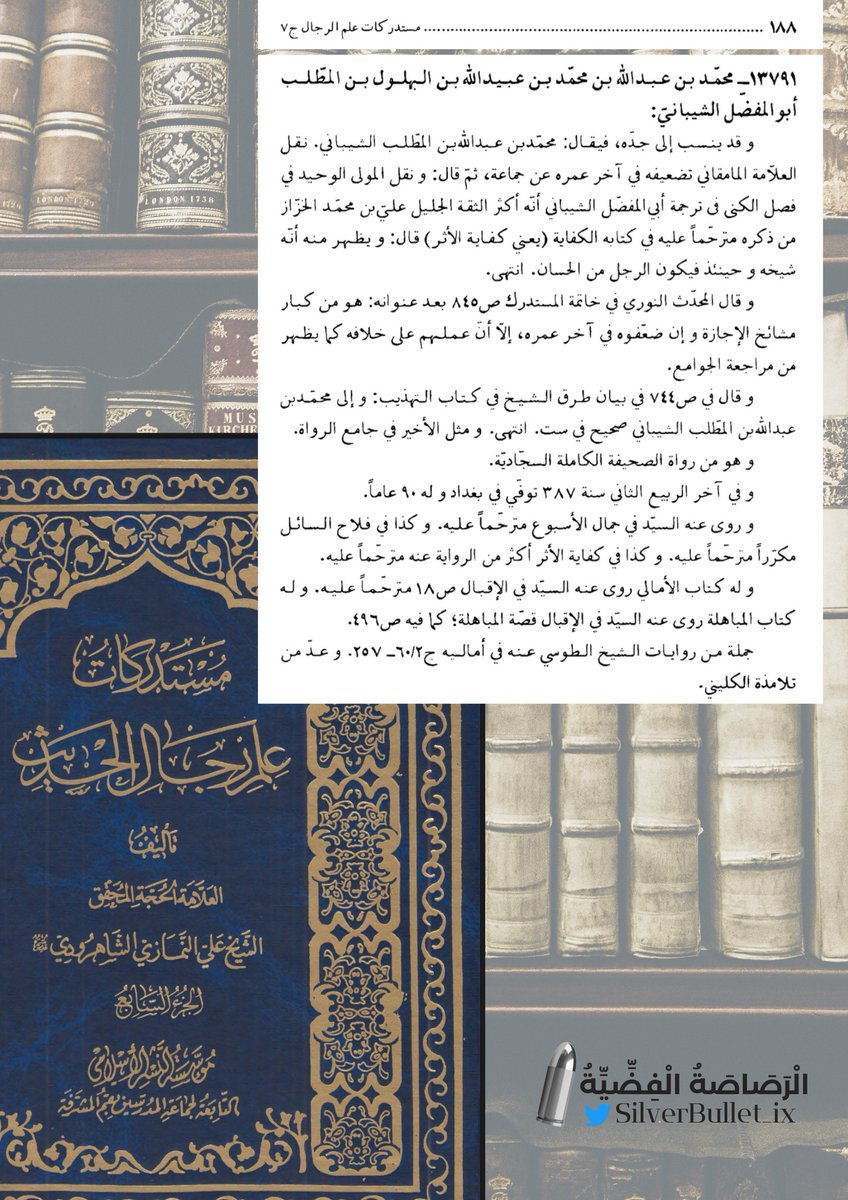 ١٨٨ ................................................................ مستدركات علم الرجال ج٧
١٣٧٩١ـ محمّد بن عبدالله بن محمّد بن عبيدالله بن البهلول بن المطّلب
أبوالمفضّل الشيبانيّ:
و قد ينسب إلى جدّه، فيقال: محمّدبن عبدالله‌بن المطّلب الشيباني. نقل
العلاّمة المامقاني تضعيفه في آخر عمره عن جماعة، ثمّ قال: و نقل المولى الوحيد في
فصل الكنى فى ترجمة أبي‌المفضّل الشيباني أنّه أكثر الثقة الجليل عليّ‌بن محمّد الخزّاز
من ذكره مترحّماً عليه في كتابه الكفاية (يعني كفاية الأثر) قال: و يظهر منه أنّه
شيخه و حينئذ فيكون الرجل من الحسان. انتهى.
و قال المحدّث النوري في خاتمة المستدرك ص٨٤٥ بعد عنوانه: هو من كبار
مشائخ الإجازة و إن ضعّفوه في آخر عمره، إلاّ أنّ عملهم على خلافه كما يظهر
من مراجعة الجوامع.
و قال في ص٧٤٤ في بيان طرق الشيخ في كتاب التهذيب: و إلى محمّدبن
عبدالله‌بن المطّلب الشيباني صحيح في ست. انتهى. و مثل الأخير في جامع الرواة.
و هو من رواة الصحيفة الكاملة السجّاديّة.
و في آخر الربيع الثاني سنة ٣٨٧ توفّي في بغداد و له ٩٠ عاماً.
و روى عنه السيّد في جمال الأسبوع مترحّماً عليه. و كذا في فلاح السائل
مكرّراً مترحّماً عليه. و كذا في كفاية الأثر أكثر من الرواية عنه مترحّماً عليه.
و له كتاب الأمالي روى عنه السيّد في الإقبال ص١٨ مترحّماً عليه. و له
كتاب المباهلة روى عنه السيّد في الإقبال قصّة المباهلة؛ كما فيه ص٤٩٦.
جملة من روايات الشيخ الطوسي عنه في أماليه ج٦٠/٢ـ ٢٥٧. و عدّ من
تلامذة الكليني.
مُسْتَدْرَكَاتُ
عِلْمِ رِجَالِ الحَدِيثِ
تَأْلِيفُ
العَلَّامَة الحُجَّة المُحَقِّق
الشَّيخ عَلِيّ النَّمَازِيّ الشَّاهرُودِيّ
الجُزءُ السَّابِعُ
مُؤَسَّسَةُ النَّشْرِ الإِسْلَامِي
التَّابِعَة لِجَمَاعَةِ المُدَرِّسِين بِقُمِ المُشَرَّفَة
LONDON 1738
الْرَصَاصَةُ الْفِضِّيَّةُ
SilverBullet_ix